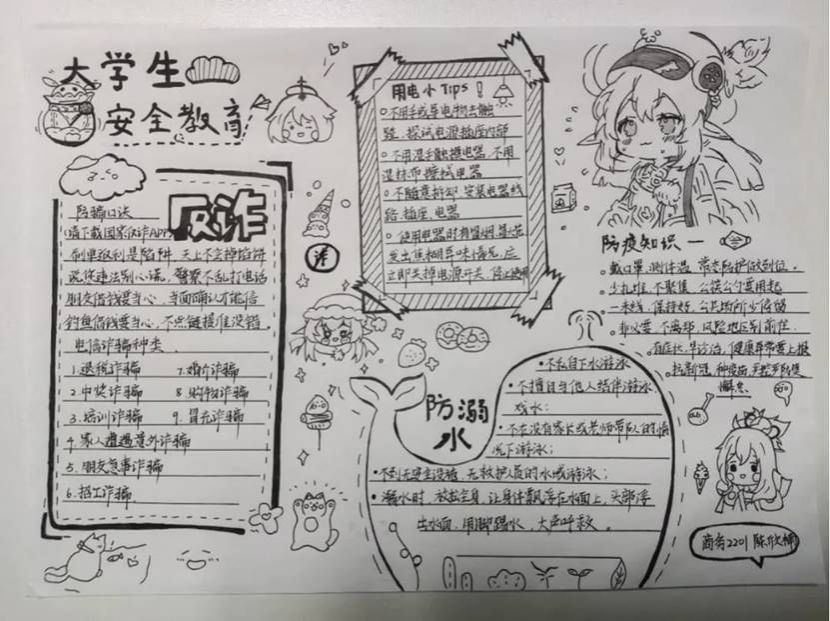 大学生
安全教育
反诈
防骗口诀
请下载国家反诈APP
刷单返利是陷阱，天上不会掉馅饼
说你违法别心慌，警察不乱打电话
朋友借钱要当心，当面确认才能信
钓鱼借钱要当心，不点链接准没错。
电信诈骗种类
1.退税诈骗 7.婚介诈骗
2.中奖诈骗 8.购物诈骗
3.培训诈骗 9.冒充诈骗
4.家人遭遇意外诈骗
5.朋友急事诈骗
6.招工诈骗
诈
用电小Tips！
不用手或导电物去触
碰、探试电源插座内部
不用湿手触摸电器，不用
湿抹布擦拭电器
不随意拆卸、安装电器线
路、插座、电器
使用电器时有冒烟、
发出焦糊异味情况，应
立即关掉电源开关，停止使用
防疫知识一
戴口罩，测体温，常态防护做到位。
少扎堆，不聚集，公筷公勺要用起
一米线，保持好，公共场所少停留
非必要，不离郑，风险地区别前往
有症状，早诊治，健康异常要上报
防溺
水
不私自下水游泳
不擅自与他人结伴游泳
戏水；
不在没有家长或老师带队的情
况下游泳；
不到无安全设施、无救护员的水域游泳；
溺水时，放松全身，让身体飘浮在水面上，头部浮
出水面，用脚踢水，大声呼救。
商务2201 陈欣楠